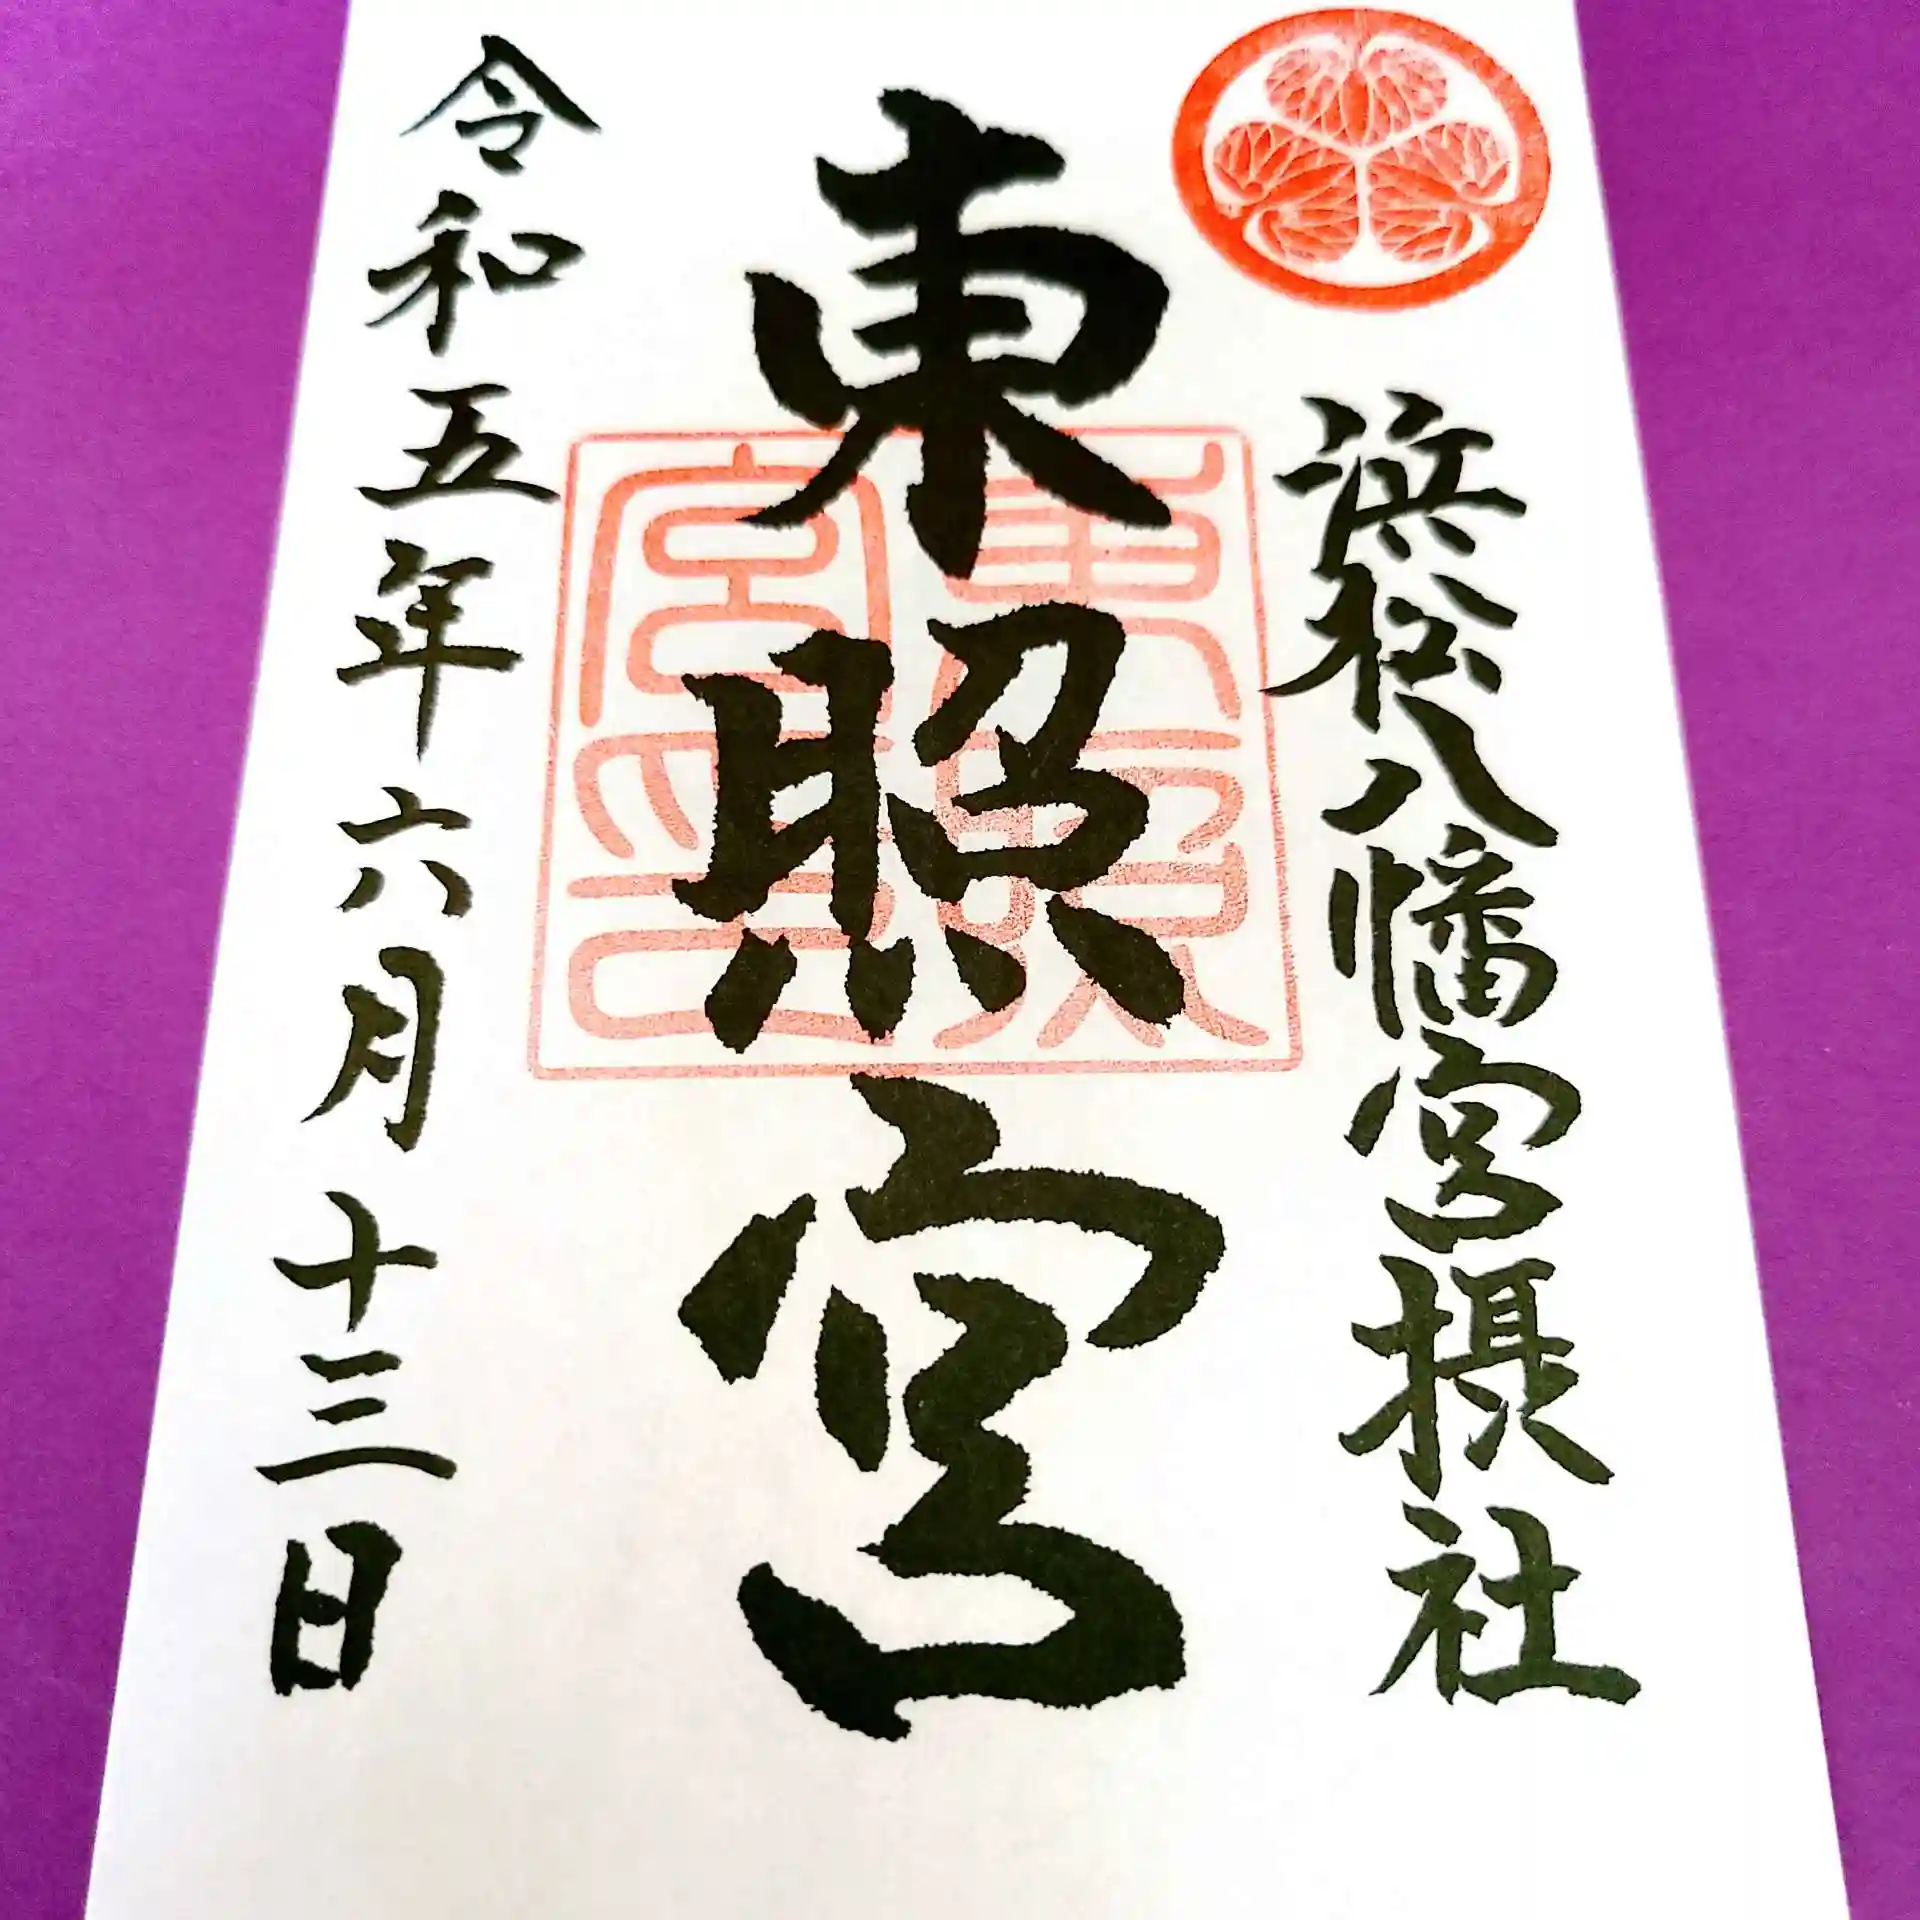 浜松八幡宮摂社
東照宮
東照宮印
令和五年六月十三日